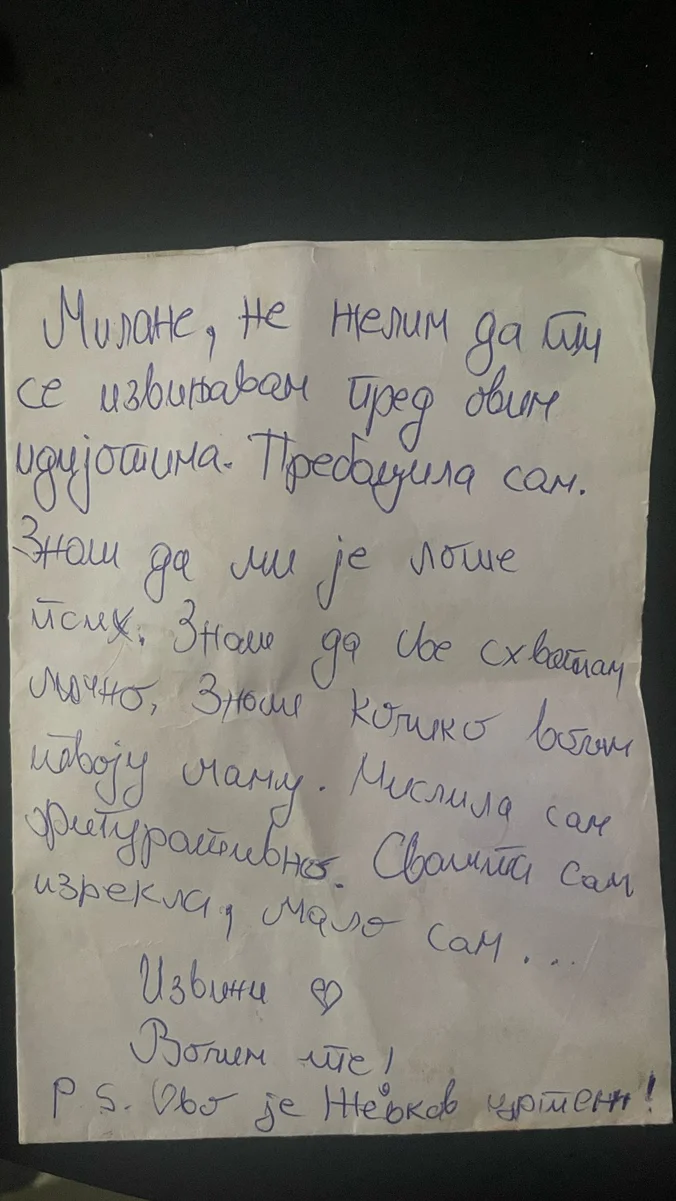 Милане, не желим да ти
се извињавам пред овим
идијотима. Пребацила сам.
Знаш да ми је лоше
псих. Знаш да све схватам
лично, знаш колико волим
твоју маму. Мислила сам
фигуративно. Свашта сам
изрекла, мало сам...
Извини ♡
Волим те!
P.S. Ово је Жевков цртеж!